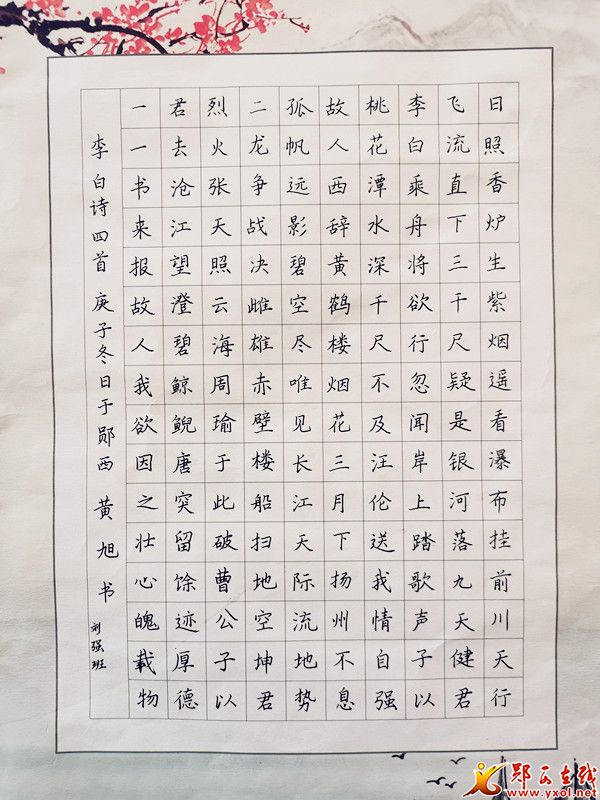 日照香炉生紫烟遥看瀑布挂前川天行
飞流直下三千尺疑是银河落九天健君
李白乘舟将欲行忽闻岸上踏歌声子以
桃花潭水深千尺不及汪伦送我情自强
故人西辞黄鹤楼烟花三月下扬州不息
孤帆远影碧空尽唯见长江天际流地势
二龙争战决雌雄赤壁楼船扫地空坤君
烈火张天照云海周瑜于此破曹公子以
君去沧江望澄碧鲸鲵唐突留馀迹厚德
一一书来报故人我欲因之壮心魄载物
李白诗四首 庚子冬日于郧西 黄旭书
刘强班
郧西在线
www.yxol.net